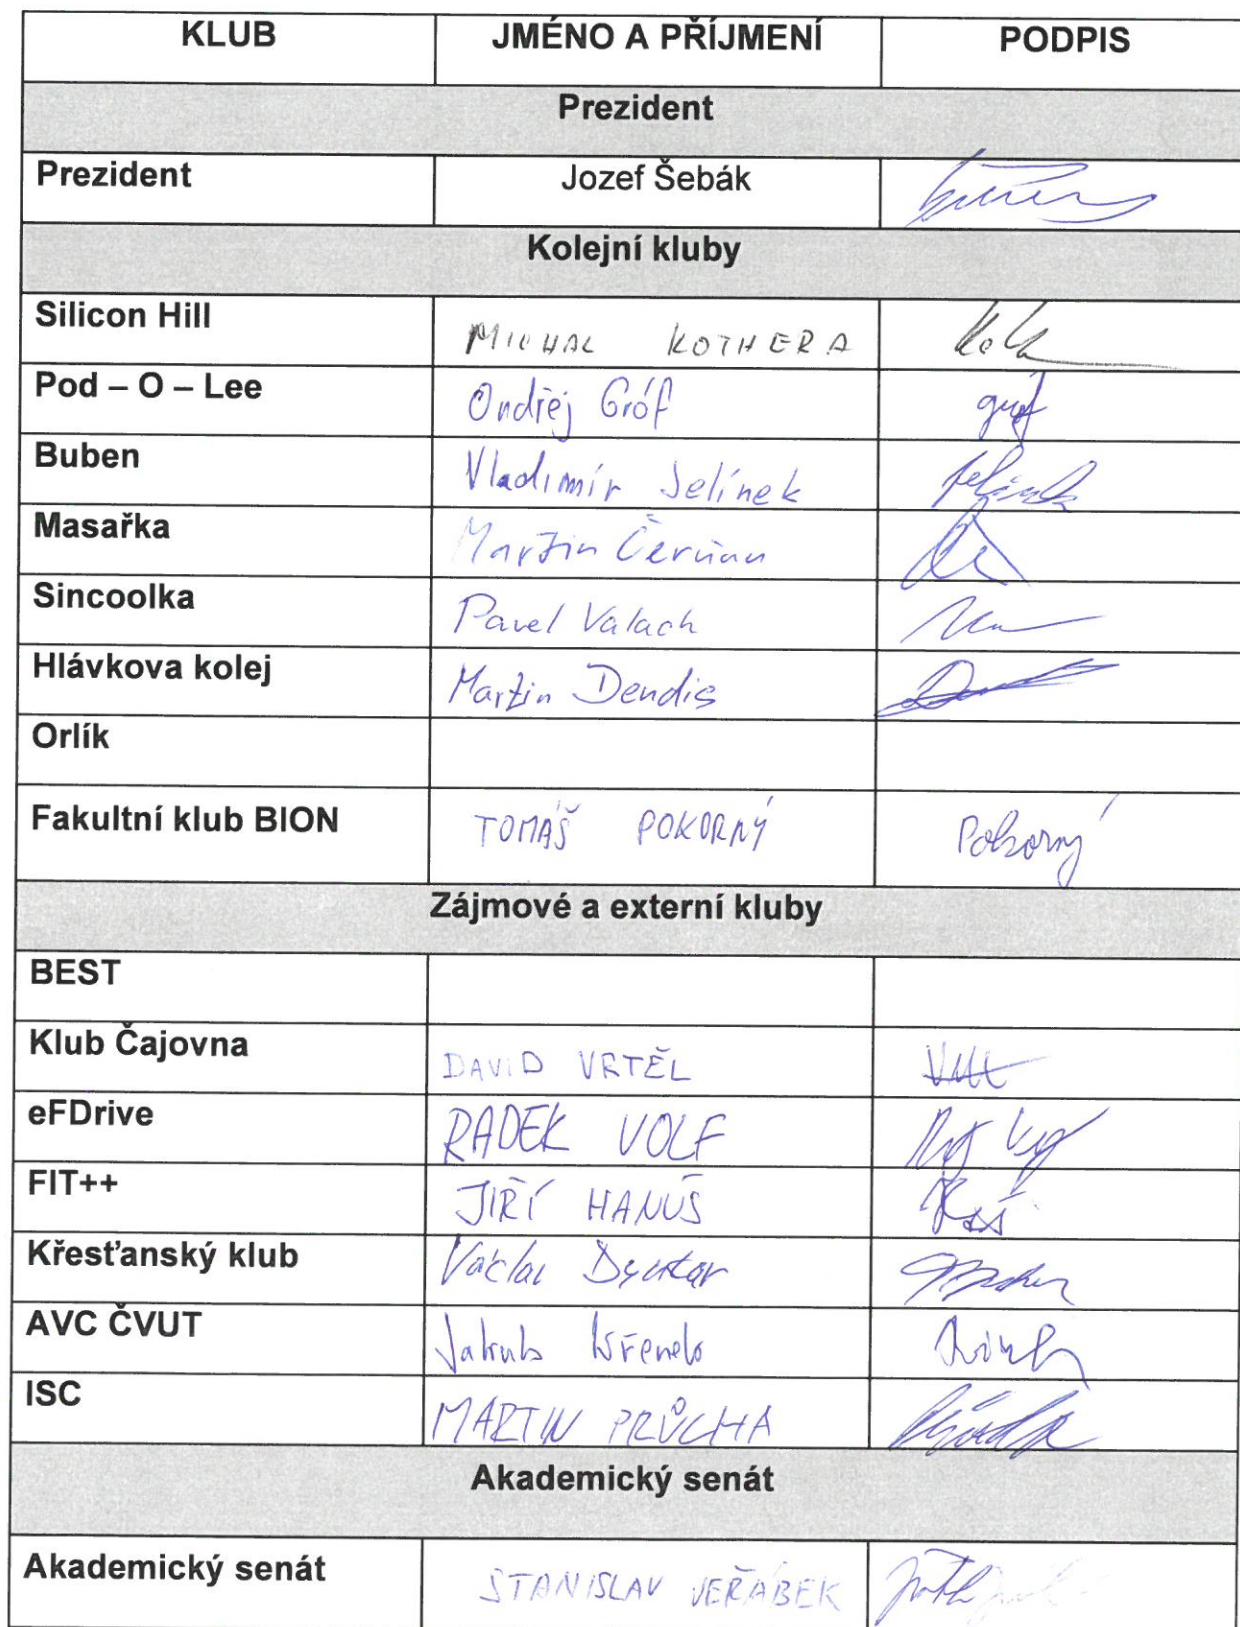 KLUB JMÉNO A PŘÍJMENÍ PODPIS
Prezident
Prezident Jozef Šebák
Kolejní kluby
Silicon Hill MICHAL KOTHERA
Pod – O – Lee Ondřej Gróf gróf
Buben Vladimír Jelínek Jelínek
Masařka Martin Čerman
Sincoolka Pavel Valach
Hlávkova kolej Martin Dendis
Orlík
Fakultní klub BION TOMÁŠ POKORNÝ Pokorný
Zájmové a externí kluby
BEST
Klub Čajovna DAVID VRTĚL
eFDrive RADEK VOLF
FIT++ JIŘÍ HANUŠ
Křesťanský klub Václav
AVC ČVUT Jakub
ISC MARTIN PRŮCHA
Akademický senát
Akademický senát STANISLAV JEŘÁBEK